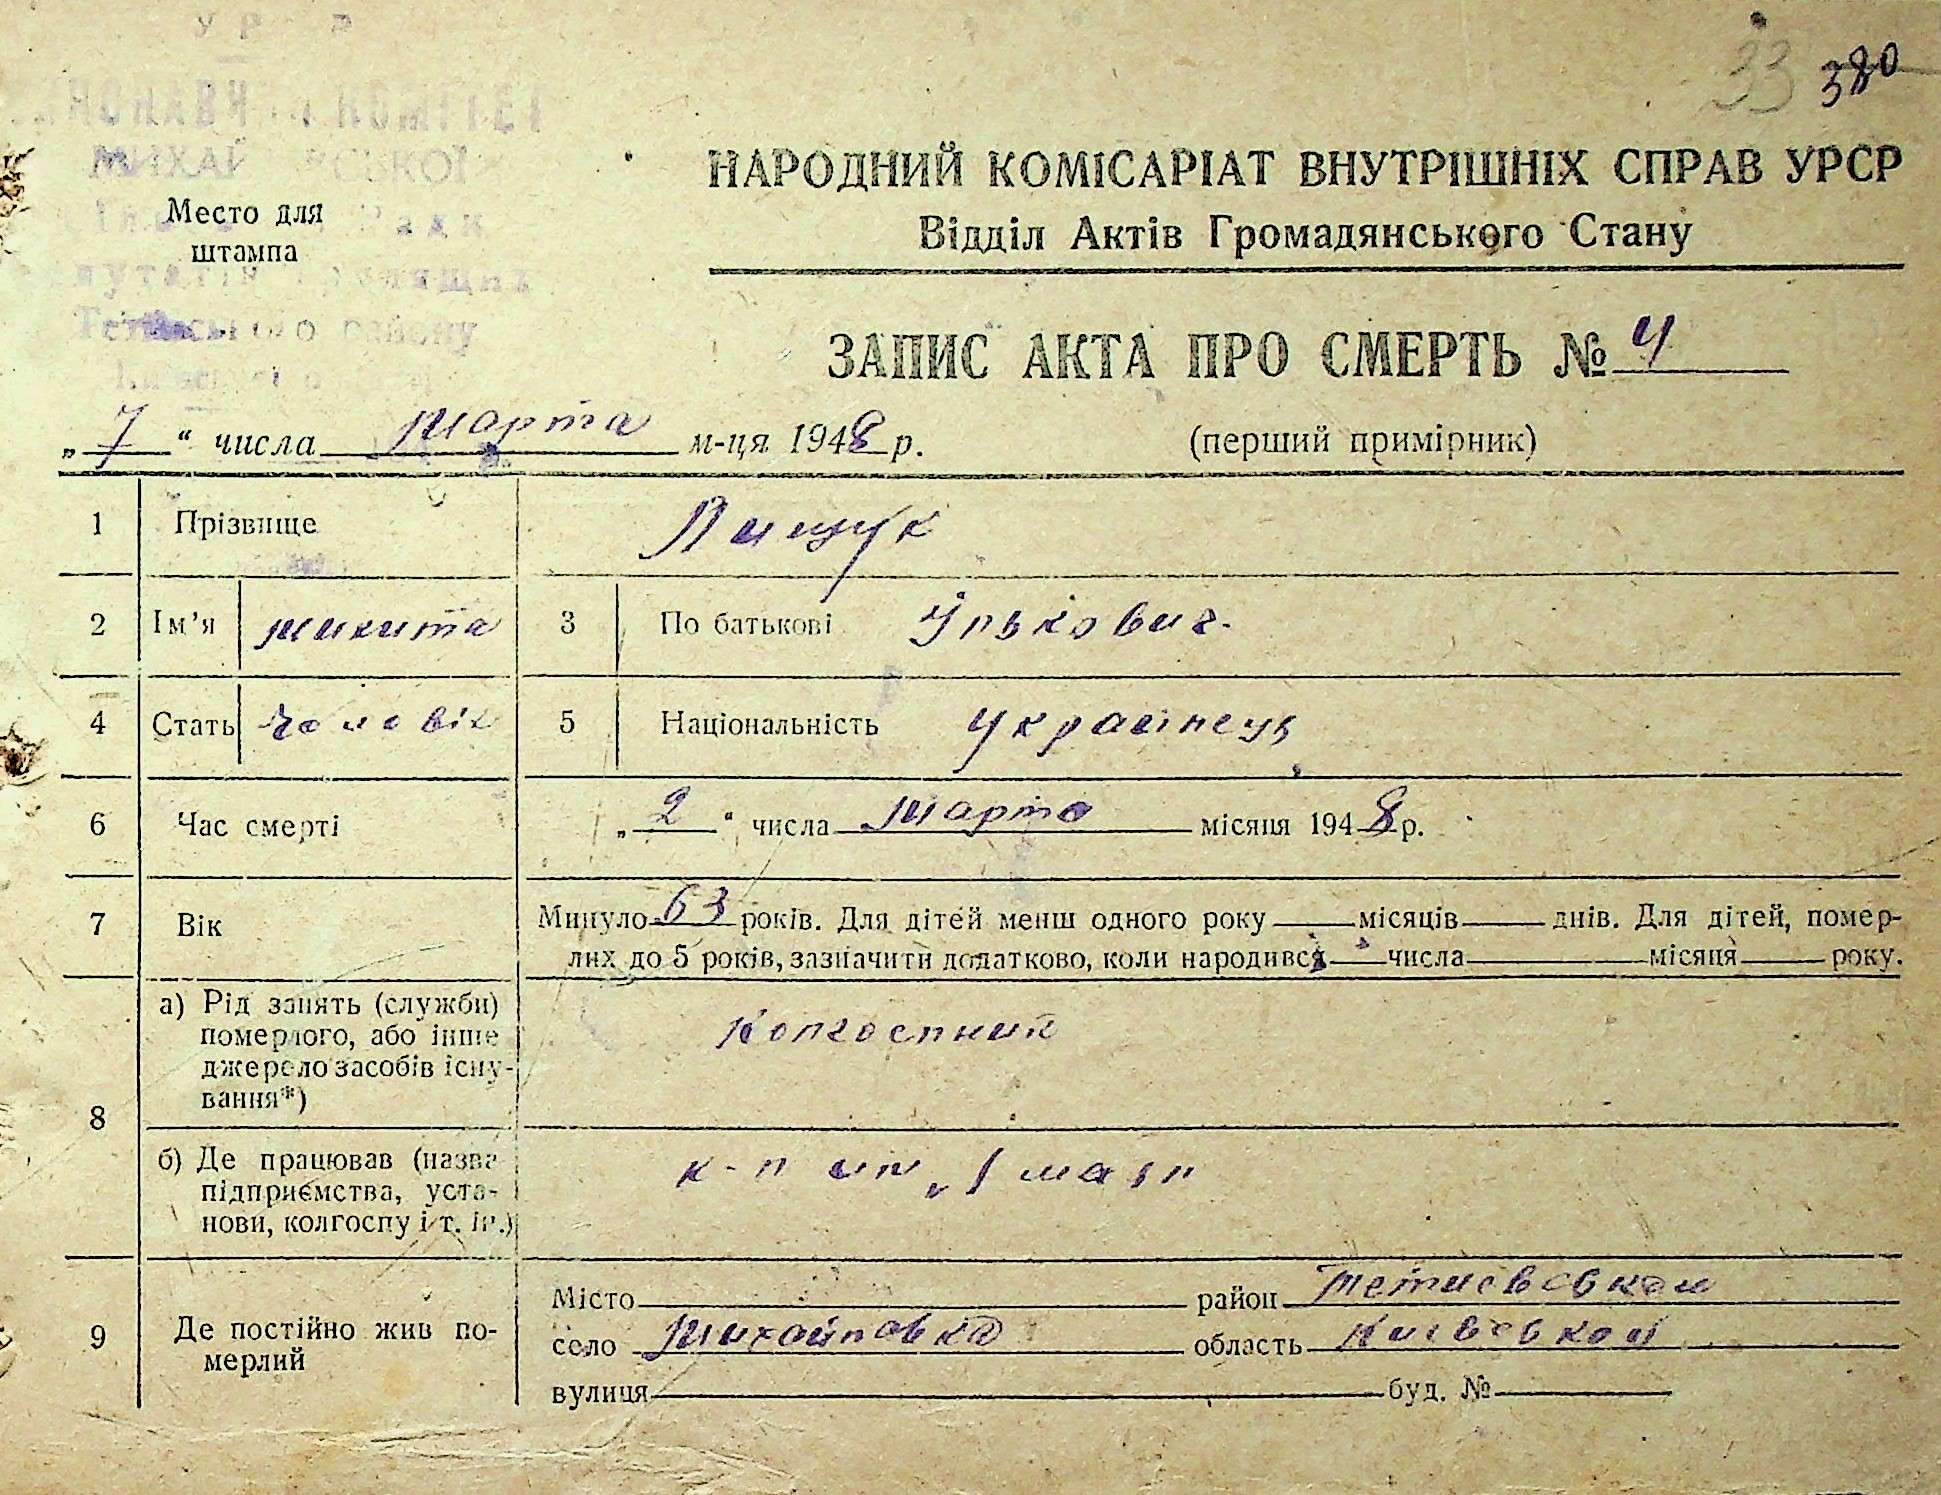 33 380
НАРОДНИЙ КОМІСАРІАТ ВНУТРІШНІХ СПРАВ УРСР
Відділ Актів Громадянського Стану
Место для
штампа
ЗАПИС АКТА ПРО СМЕРТЬ № 4
„ 7 “ числа марта м-ця 1948 р. (перший примірник)
1 Прізвище Пищук
2 Ім’я микита 3 По батькові
4 Стать чоловік 5 Національність українець
6 Час смерті „ 2 “ числа марта місяця 1948 р.
7 Вік Минуло 63 років. Для дітей менш одного року місяців днів. Для дітей, помер-
лих до 5 років, зазначити додатково, коли народився числа місяця року.
8 а) Рід занять (служби)
померлого, або інше
джерело засобів існу-
вання*)
Колгоспник
б) Де працював (назва
підприємства, уста-
нови, колгоспу і т. ін.)
к-п им „1 мая"
9 Де постійно жив по-
мерлий
Місто район Тетиевской
село Михайловка область Киевской
вулиця буд. №